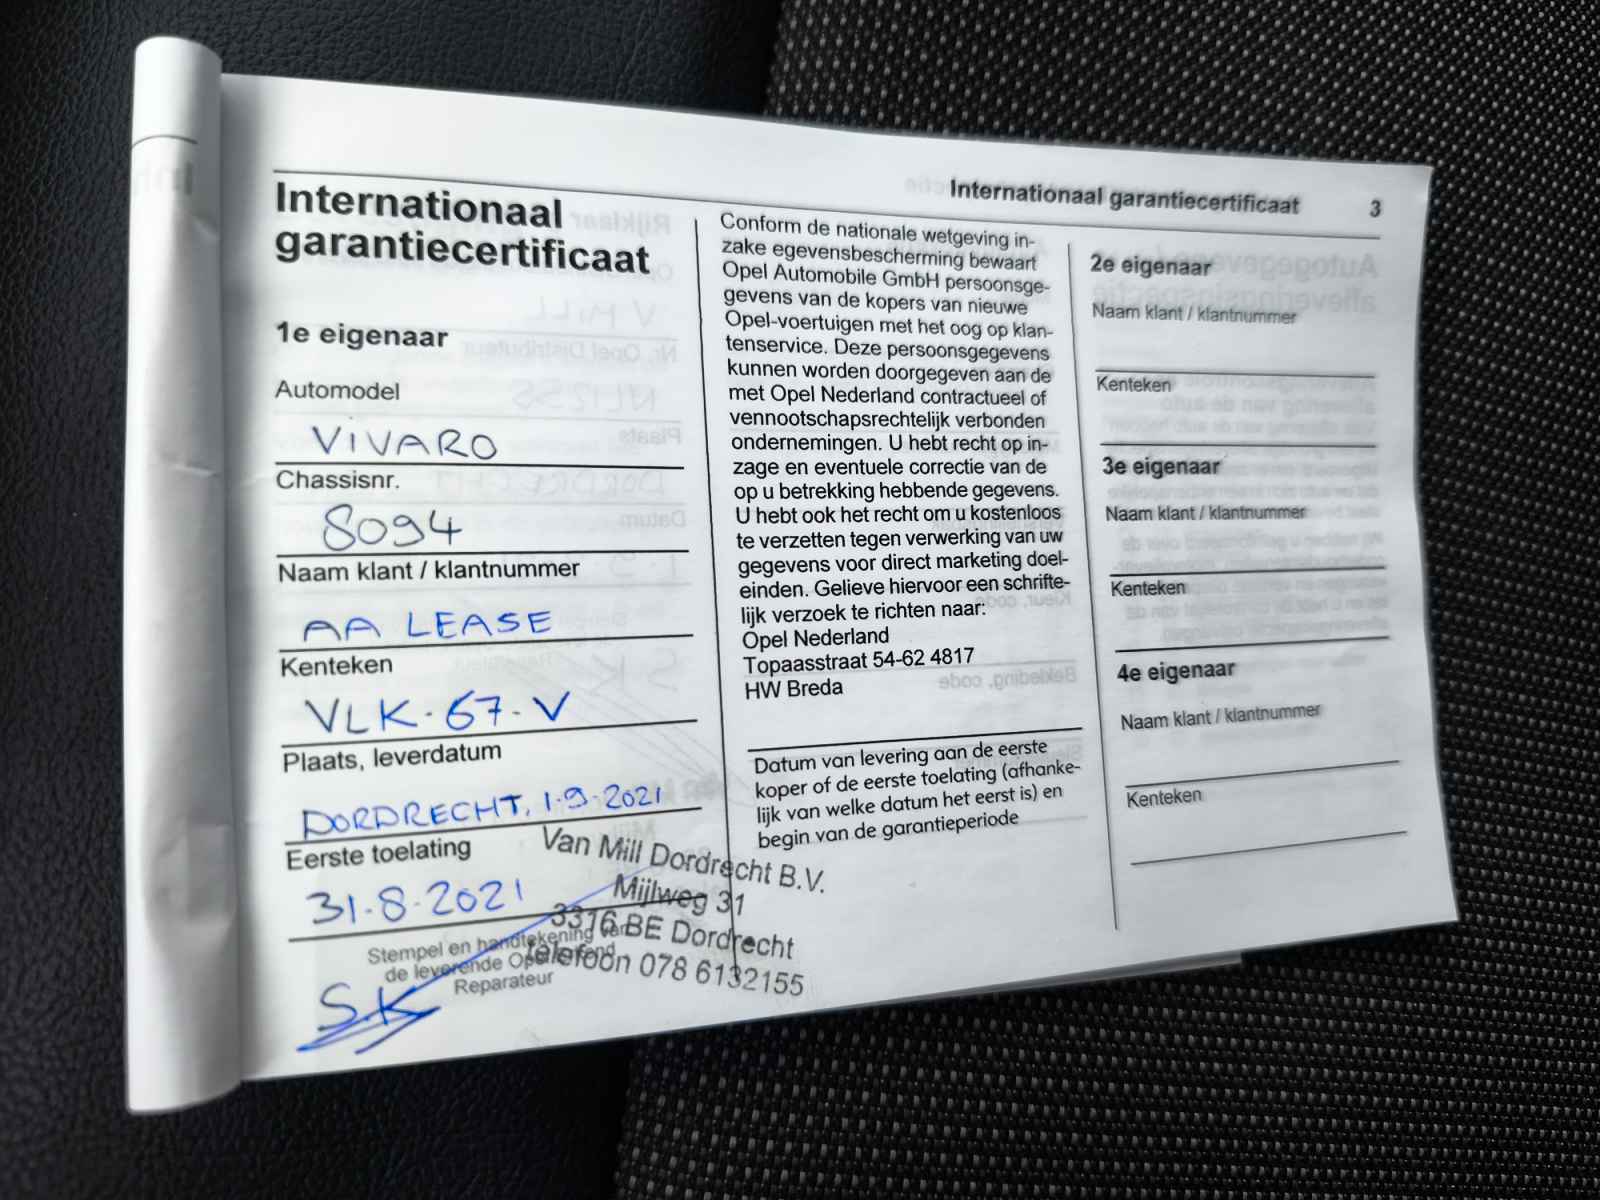 Internationaal garantiecertificaat 3
Internationaal
garantiecertificaat
1e eigenaar
Automodel
VIVARO
Chassisnr.
8094
Naam klant / klantnummer
AA LEASE
Kenteken
VLK-67-V
Plaats, leverdatum
DORDRECHT, 1-9-2021
Eerste toelating
31-8-2021
Stempel en handtekening van
de leverende Opel Erkend
Reparateur
S.K
Van Mill Dordrecht B.V.
Mijlweg 31
3316 BE Dordrecht
telefoon 078 6132155
Conform de nationale wetgeving in-
zake egevensbescherming bewaart
Opel Automobile GmbH persoonsge-
gevens van de kopers van nieuwe
Opel-voertuigen met het oog op klan-
tenservice. Deze persoonsgegevens
kunnen worden doorgegeven aan de
met Opel Nederland contractueel of
vennootschapsrechtelijk verbonden
ondernemingen. U hebt recht op in-
zage en eventuele correctie van de
op u betrekking hebbende gegevens.
U hebt ook het recht om u kostenloos
te verzetten tegen verwerking van uw
gegevens voor direct marketing doel-
einden. Gelieve hiervoor een schrifte-
lijk verzoek te richten naar:
Opel Nederland
Topaasstraat 54-62 4817
HW Breda
Datum van levering aan de eerste
koper of de eerste toelating (afhanke-
lijk van welke datum het eerst is) en
begin van de garantieperiode
2e eigenaar
Naam klant / klantnummer
Kenteken
3e eigenaar
Naam klant / klantnummer
Kenteken
4e eigenaar
Naam klant / klantnummer
Kenteken